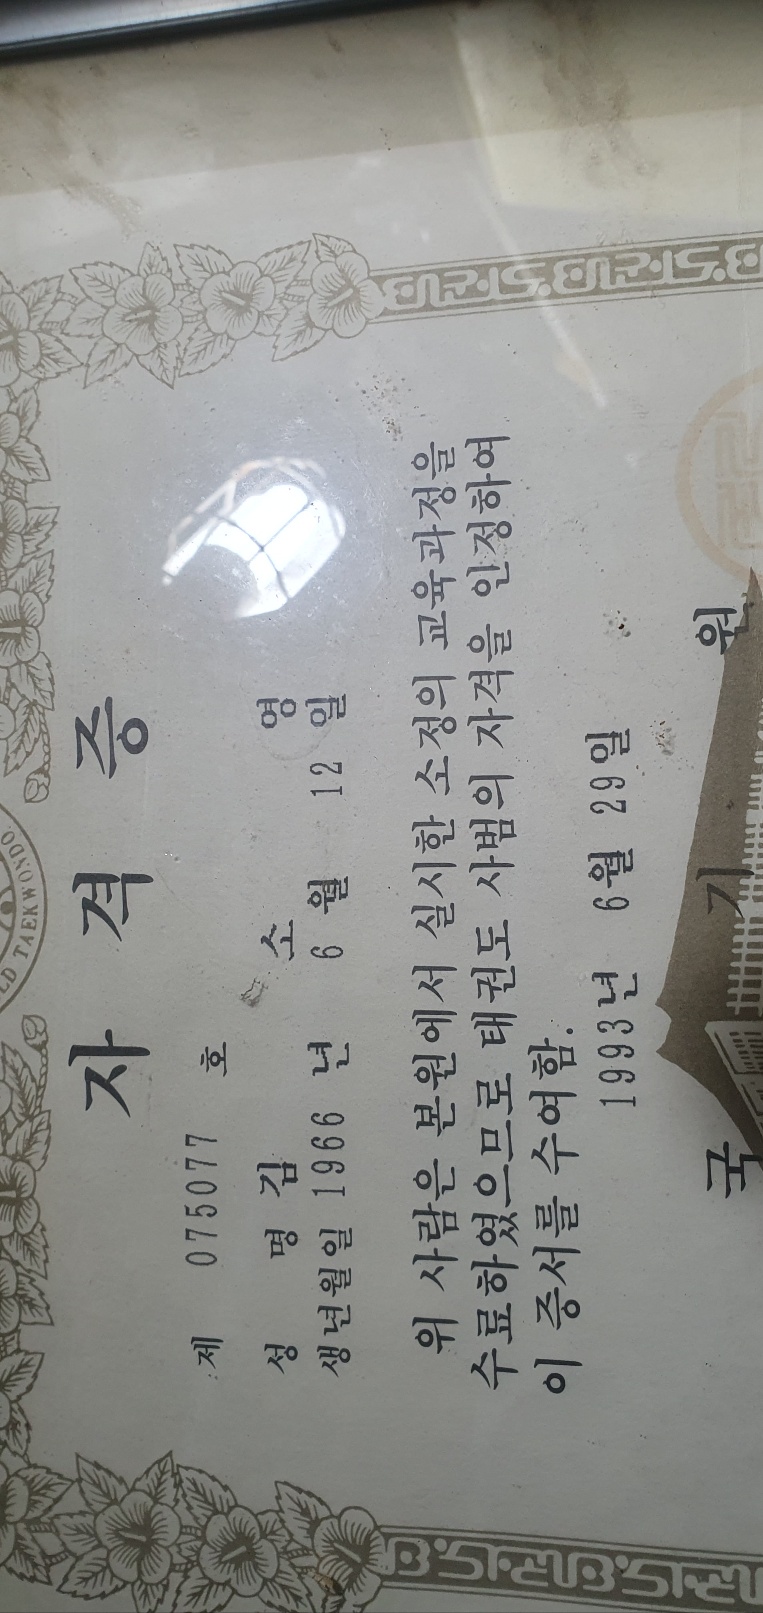 LD TAEKWONDO
자 격 증
제 075077 호
성 명 김 소 영
생년월일 1966 년 6 월 12 일
위 사람은 본원에서 실시한 소정의 교육과정을
수료하였으므로 태권도 사범의 자격을 인정하여
이 증서를 수여함.
1993년 6월 29일
국 기 원